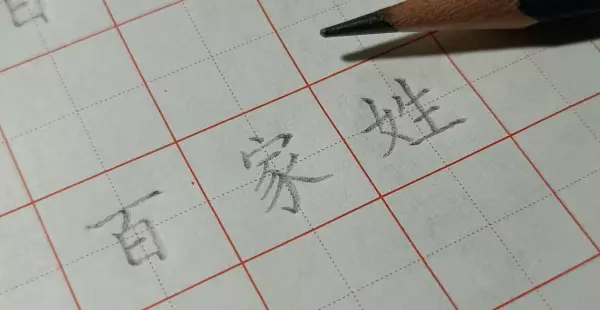 百家姓